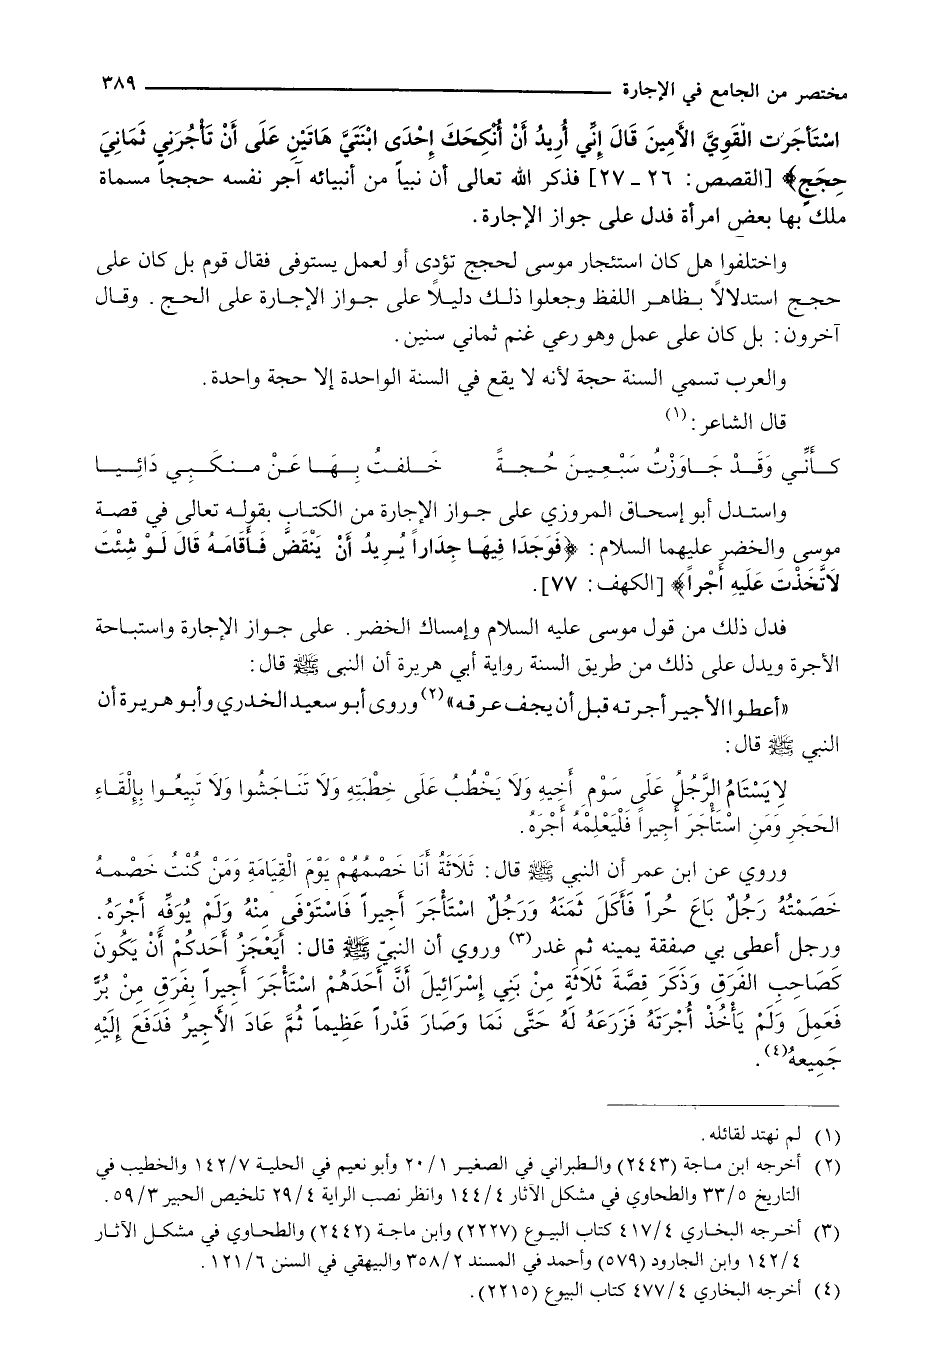 مختصر من الجامع في الإجارة ٣٨٩
اسْتَأجَرْت الْقَوِيَّ الأَمِينَ قَالَ إِنِّي أُرِيدُ أَنْ أُنْكِحَكَ إِحْدَى ابْنَتَيَّ هَاتَيْنِ عَلَى أَنْ تَأْجُرَنِي ثَمَانِيَ
حِجَجٍ﴾ [القصص: ٢٦ ـ ٢٧] فذكر الله تعالى أن نبياً من أنبيائه آجر نفسه حججاً مسماة
ملك بها بعض امرأة فدل على جواز الإجارة.
واختلفوا هل كان استئجار موسى لحجج تؤدى أو لعمل يستوفى فقال قوم بل كان على
حجج استدلالًا بظاهر اللفظ وجعلوا ذلك دليلًا على جواز الإجارة على الحج. وقال
آخرون: بل كان على عمل وهو رعي غنم ثماني سنين.
والعرب تسمي السنة حجة لأنه لا يقع في السنة الواحدة إلا حجة واحدة.
قال الشاعر:(١)
كَأَنِّي وَقَدْ جَاوَزْتُ سَبْعِينَ حُجةً خَلفتُ بِهَا عَنْ منكبِي دَائِيا
واستدل أبو إسحاق المروزي على جواز الإجارة من الكتاب بقوله تعالى في قصة
موسى والخضر عليهما السلام: ﴿فَوَجَدَا فِيهَا جِدَاراً يُرِيدُ أَنْ يَنْقَضَّ فَأَقَامَهُ قَالَ لَوْ شِئْتَ
لَاتَّخَذْتَ عَلَيهِ أَجْراً﴾ [الكهف: ٧٧].
فدل ذلك من قول موسى عليه السلام وإمساك الخضر. على جواز الإجارة واستباحة
الأجرة ويدل على ذلك من طريق السنة رواية أبي هريرة أن النبى ﷺ قال:
«أعطوا الأجير أجرته قبل أن يجف عرقه»(٢) وروى أبو سعيد الخدري وأبو هريرة أن
النبي ﷺ قال:
لا يَسْتَامُ الرَّجُلُ عَلَى سَوْمِ أَخِيهِ وَلَا يَخْطُبُ عَلَى خِطْبَتِهِ وَلَا تَنَاجَشُوا وَلَا تَبِيعُوا بِإِلْقَاءِ
الحَجَرِ وَمَنِ اسْتَأْجَرَ أَجِيراً فَلْيَعْلِمْهُ أَجْرَهُ.
وروي عن ابن عمر أن النبي ﷺ قال: ثَلَاثَةُ أَنَا خَصْمُهُمْ يَوْمَ الْقِيَامَةِ وَمَنْ كُنْتُ خَصْمهُ
خَصَمْتُهُ رَجُلٌ بَاعَ حُراً فَأَكَلَ ثَمَنَهُ وَرَجُلٌ اسْتَأْجَرَ أَجِيراً فَاسْتَوْفَى مِنْهُ وَلَمْ يُوَفِّهِ أَجْرَهُ.
ورجل أعطى بي صفقة يمينه ثم غدر(٣) وروي أن النبيّ ﷺ قال: أَيَعْجَزُ أَحَدكُمْ أَنْ يَكُونَ
كَصَاحِبِ الفَرَقِ وَذَكَرَ قِصَّةَ ثَلَاثَةٍ مِنْ بَنِي إِسْرَائِيلَ أَنَّ أَحَدَهُمْ اسْتَأْجَرَ أَجِيراً بِفَرَقٍ مِنْ بُرٍّ
فَعَمِلَ وَلَمْ يَأْخُذْ أُجْرَتَهُ فَزَرَعَهُ لَهُ حَتَّى نَمَا وَصَارَ قَدْراً عَظِيماً ثُمَّ عَادَ الأَجِيرُ فَدَفَعَ إِلَيْهِ
جَمِيعهُ(٤).
(١) لم نهتد لقائله.
(٢) أخرجه ابن ماجة (٢٤٤٣) والطبراني في الصغير ٢٠/١ وأبو نعيم في الحلية ١٤٢/٧ والخطيب في
التاريخ ٣٣/٥ والطحاوي في مشكل الآثار ١٤٤/٤ وانظر نصب الراية ٢٩/٤ تلخيص الحبير ٥٩/٣.
(٣) أخرجه البخاري ٤١٧/٤ كتاب البيوع (٢٢٢٧) وابن ماجة (٢٤٤٢) والطحاوي في مشكل الآثار
١٤٢/٤ وابن الجارود (٥٧٩) وأحمد في المسند ٣٥٨/٢ والبيهقي في السنن ١٢١/٦.
(٤) أخرجه البخاري ٤٧٧/٤ كتاب البيوع (٢٢١٥).